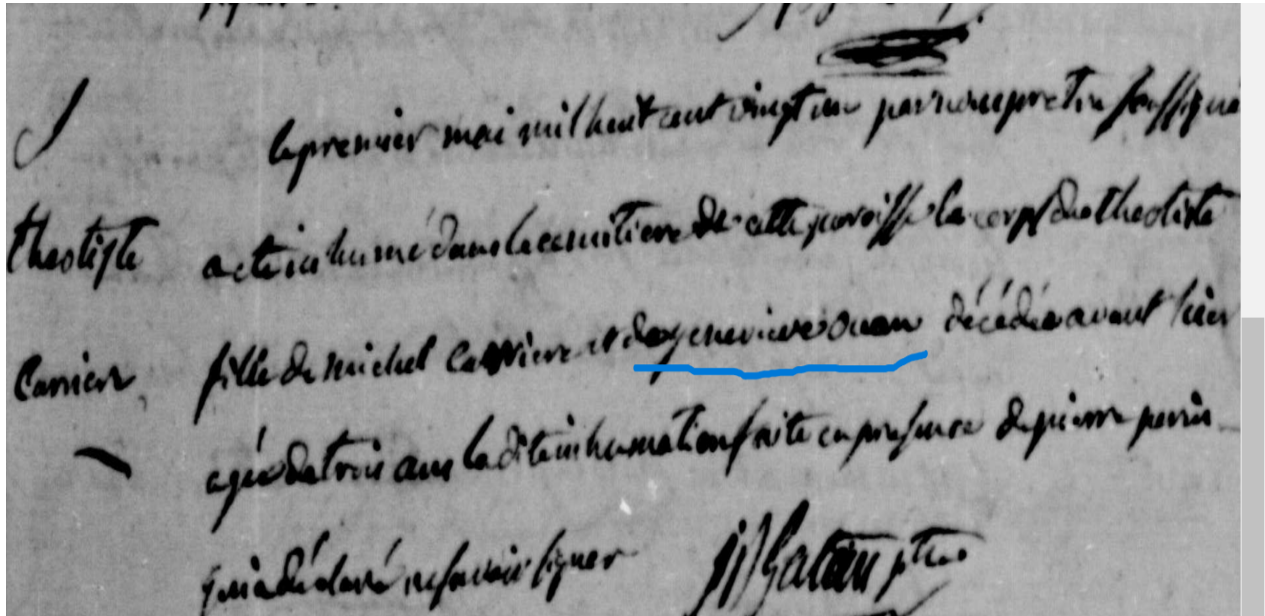 S
le premier mai mil huit cent vingt un par nous pretre soussigné
theotiste a eté inhumé dans le cemitiere de cette paroisse le corps de theotiste
Carriere fille de michel Carriere et de genevieve ouan décédée avant hier
agée de trois ans la dite inhumation faite en presence de pierre perrin
qui a déclaré ne savoir signer ptre